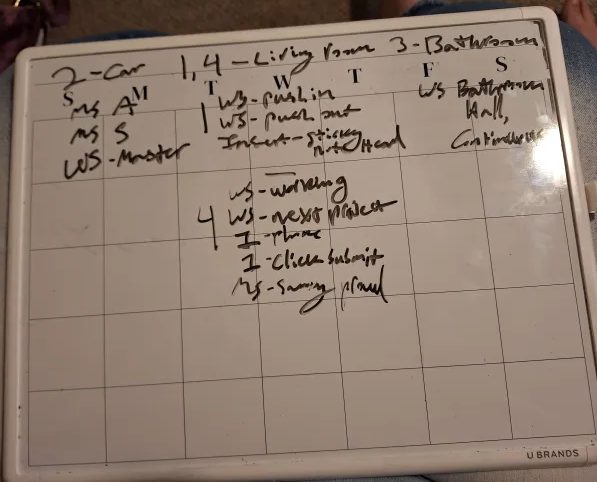 2-Car 1,4-Living room 3-Bathroom
S M T W T F S
MS A
MS S
WS-Master
1 WS-push in
WS-push out
Insert-sticky note Head
WS Bathroom
Hall,
Continuous
4 WS-working
WS-next project
I-phone
I-Click submit
MS-Saming proud
U BRANDS